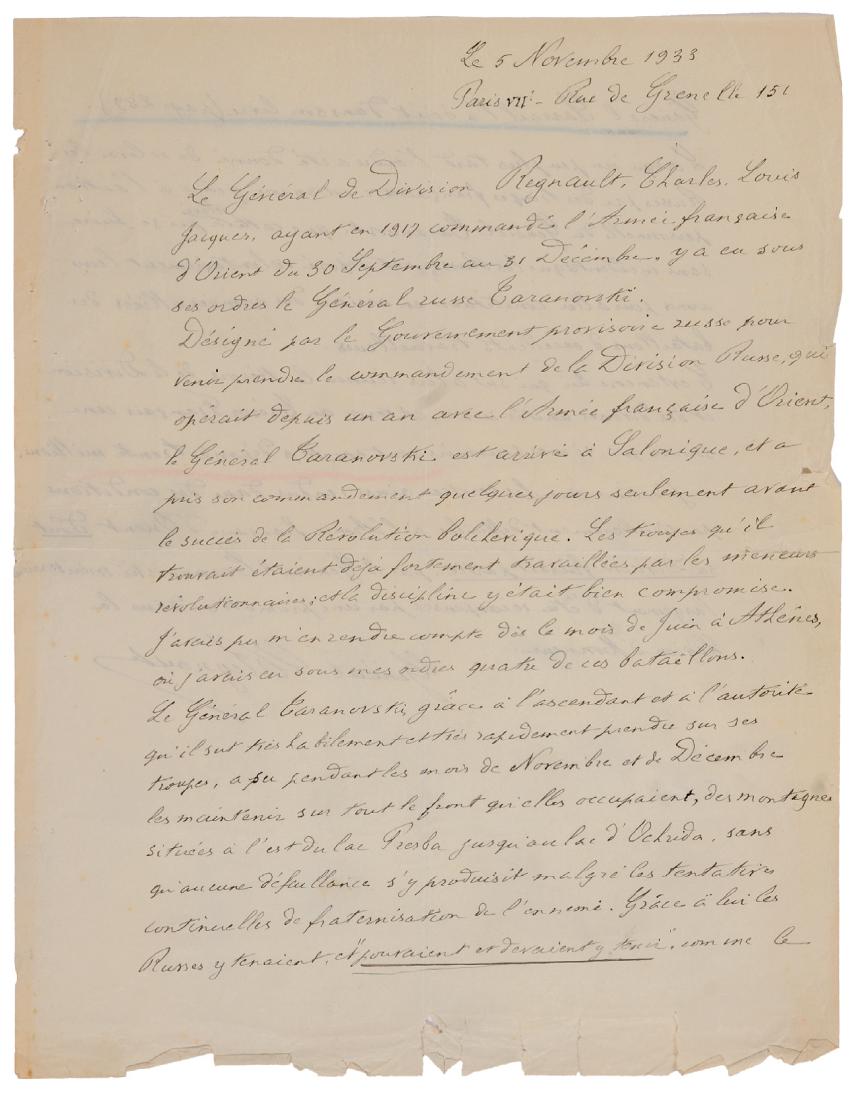 Le 5 Novembre 1933
Paris VIIe - Rue de Grenelle 151
Le Général de Division Regnault, Charles, Louis
Jacques, ayant en 1917 commandé l'Armée française
d'Orient du 30 Septembre au 31 Décembre, y a eu sous
ses ordres le Général russe Taranovski.
Désigné par le Gouvernement provisoire russe pour
venir prendre le commandement de la Division Russe, qui
opérait depuis un an avec l'Armée française d'Orient,
le Général Taranovski est arrivé à Salonique, et a
pris son commandement quelques jours seulement avant
le succès de la Révolution bolchevique. Les troupes qu'il
trouvait étaient déjà fortement travaillées par les meneurs
révolutionnaires; et la discipline y était bien compromise.
J'avais pu m'en rendre compte dès le mois de Juin à Athènes,
où j'avais eu sous mes ordres quatre de ces bataillons.
Le Général Taranovski, grâce à l'ascendant et à l'autorité
qu'il sut très habilement et très rapidement prendre sur ses
troupes, a pu pendant les mois de Novembre et de Décembre
les maintenir sur tout le front qu'elles occupaient, des montagnes
situées à l'est du lac Presba jusqu'au lac d'Ochrida, sans
qu'aucune défaillance s'y produisit malgré les tentatives
continuelles de fraternisation de l'ennemi. Grâce à lui les
Russes y tenaient, et "pouvaient et devaient y tenir", comme le